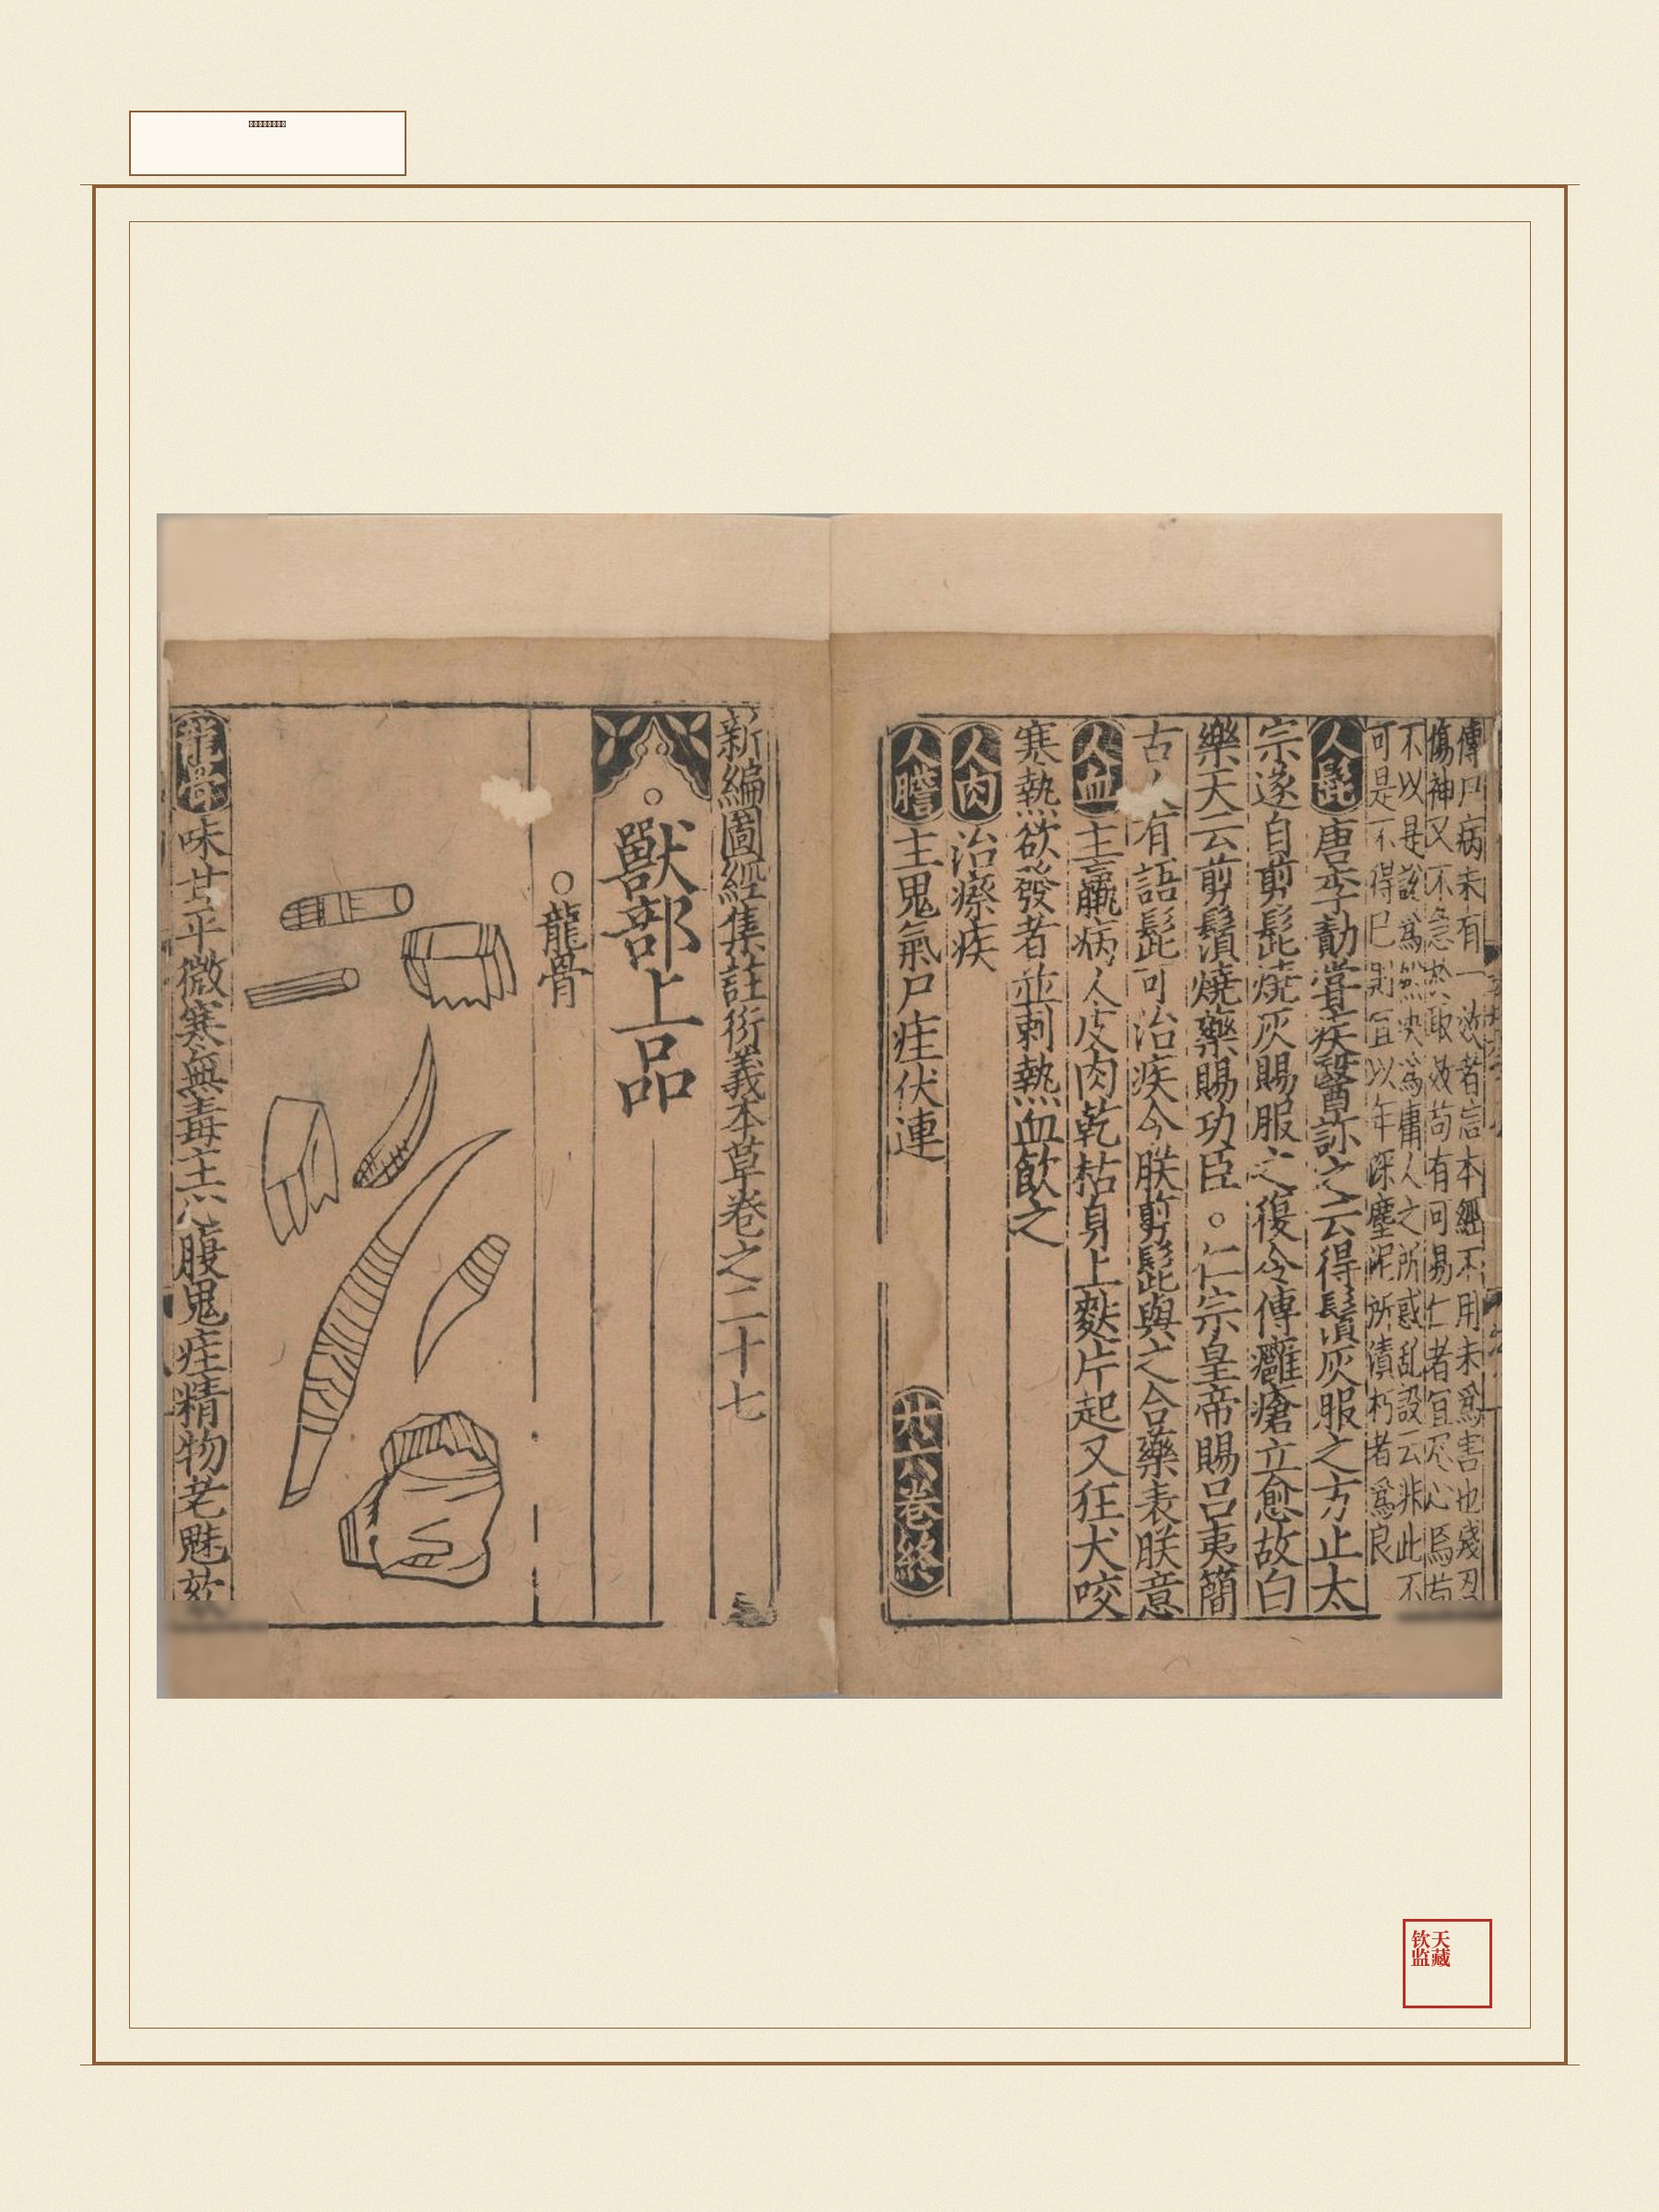 傳尸病未有一效者信本經不用未爲害也殘忍
傷神又不急於取效苟有可易仁者宜尽心焉苟
不以是說爲然決爲庸人之所惑乱設云非此不
可是不得已則宜以年深塵泥所漬朽者爲良
人髭唐李勣嘗疾醫診之云得鬚灰服之方止太
宗遂自剪髭燒灰賜服之復令傅癰瘡立愈故白
樂天云剪鬚燒藥賜功臣○仁宗皇帝賜吕夷簡
古人有語髭可治疾今朕剪髭與之合藥表朕意
人血主羸病人皮肉乾枯身上麩片起又狂犬咬
寒熱欲發者並刺熱血飮之
人肉治瘵疾
人膽主鬼氣尸疰伏連
卷終
新編圖經集註衍義本草卷之二十七
○獸部上品
○龍骨
龍骨味甘平微寒無毒主心腹鬼疰精物老魅欬
钦天
监藏